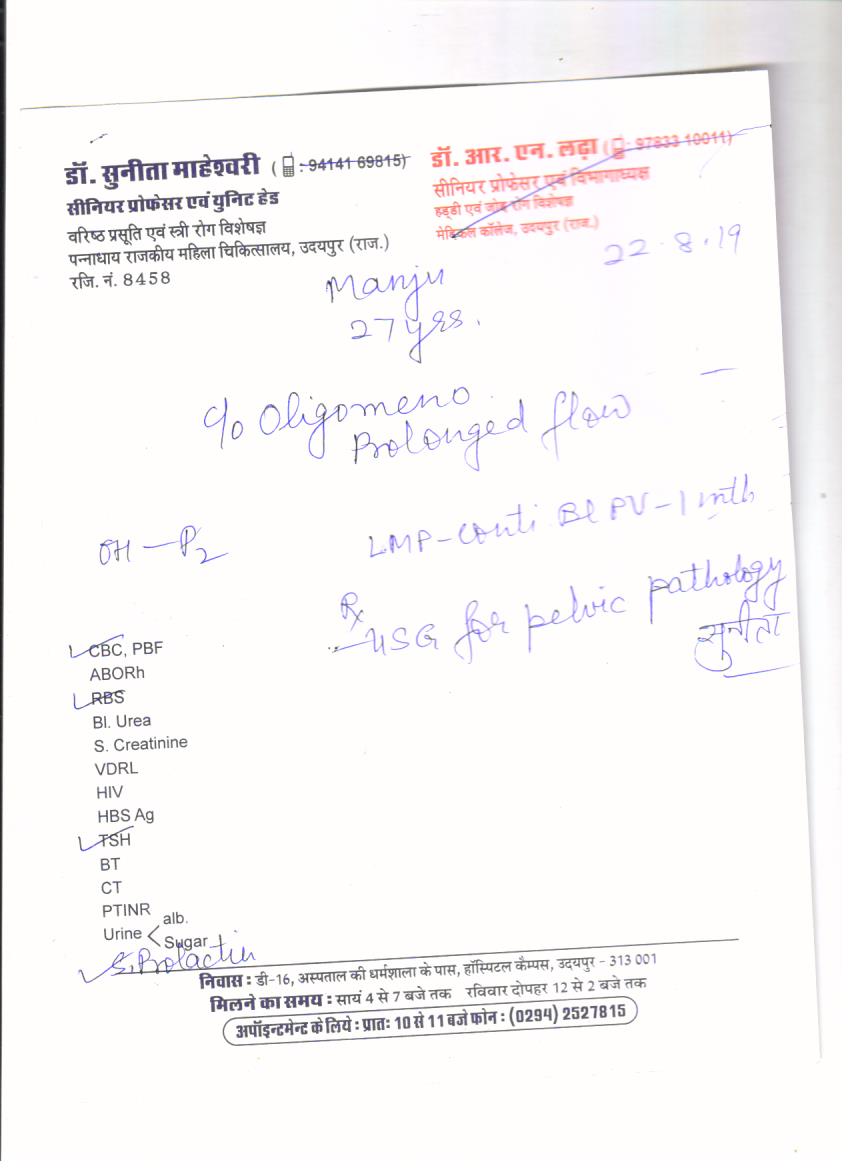 डॉ. सुनीता माहेश्वरी ( : 94141 69815)
सीनियर प्रोफेसर एवं युनिट हेड
वरिष्ठ प्रसूति एवं स्त्री रोग विशेषज्ञ
पन्नाधाय राजकीय महिला चिकित्सालय, उदयपुर (राज.)
रजि. नं. 8458
डॉ. आर. एन. लढ़ा ( : 97833 10011)
सीनियर प्रोफेसर एवं विभागाध्यक्ष
हड्डी एवं जोड़ रोग विशेषज्ञ
मेडिकल कॉलेज, उदयपुर (राज.)
22.8.19
Manju
27 yrs.
c/o Oligomeno
Prolonged flow
OH - P2
LMP - conti Bl PV - 1 mth
Rx
- USG for pelvic pathology
सुनीता
CBC, PBF
ABORh
RBS
Bl. Urea
S. Creatinine
VDRL
HIV
HBS Ag
TSH
BT
CT
PTINR
Urine < alb.
Sugar
S. Prolactin
निवास : डी-16, अस्पताल की धर्मशाला के पास, हॉस्पिटल कैम्पस, उदयपुर - 313 001
मिलने का समय : सायं 4 से 7 बजे तक रविवार दोपहर 12 से 2 बजे तक
अपॉइन्टमेन्ट के लिये : प्रातः 10 से 11 बजे फोन : (0294) 2527815